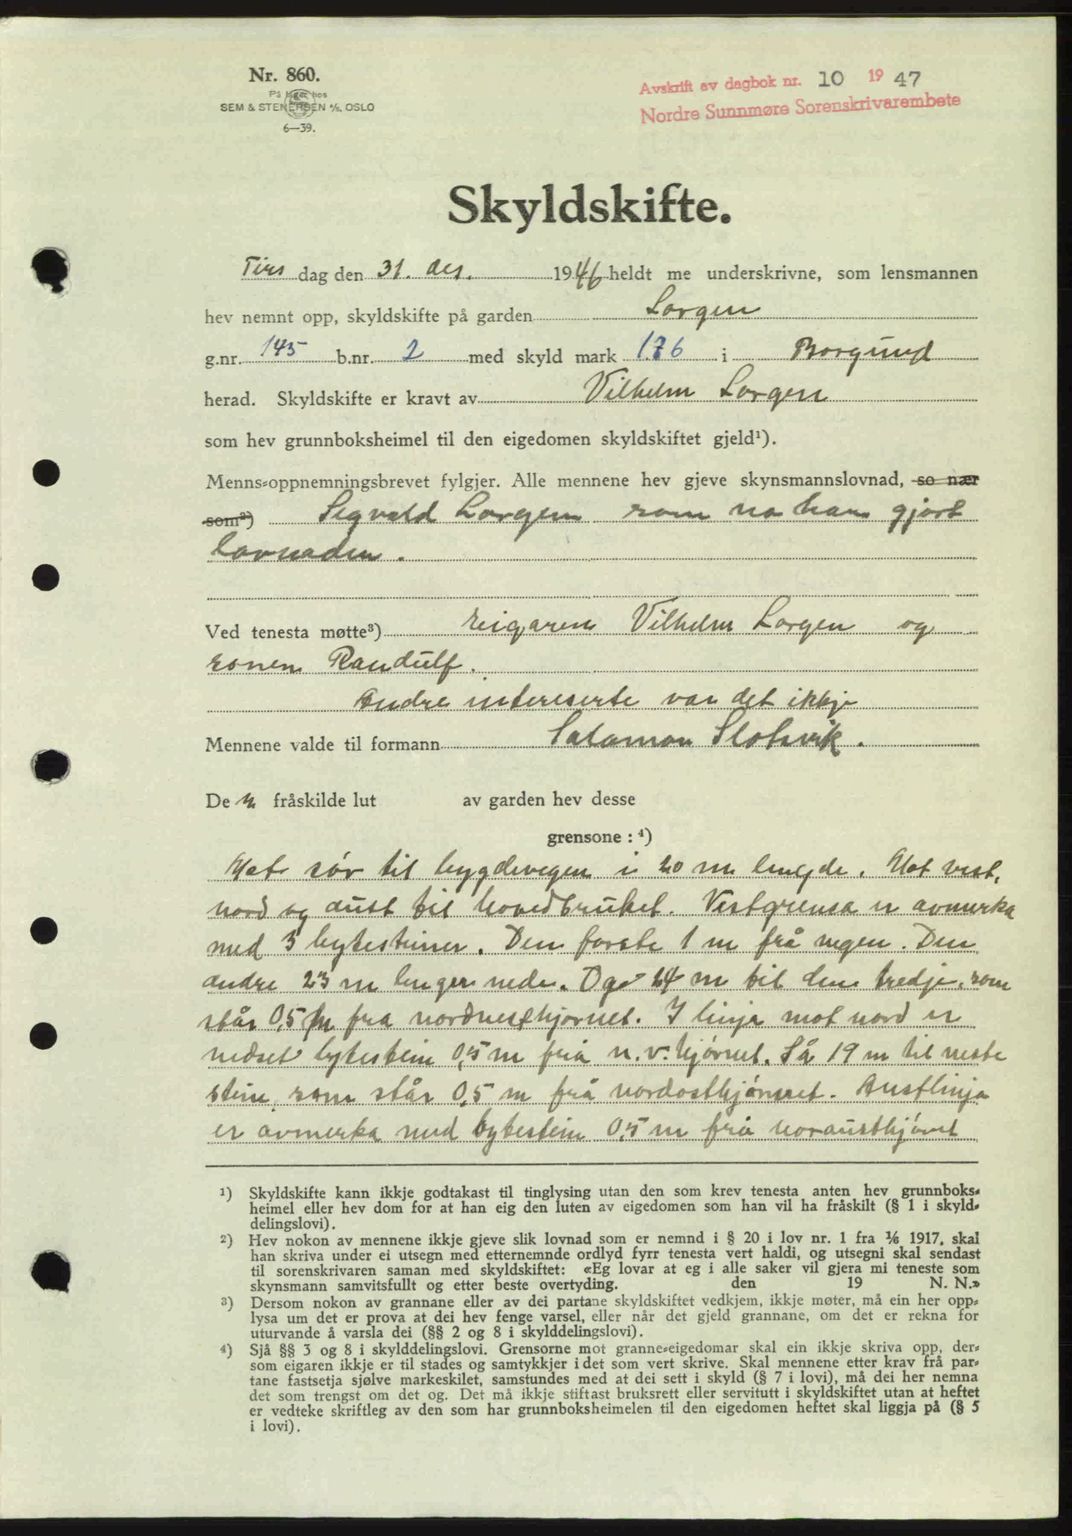 Nr. 860.
På lager hos
SEM & STENERSEN A/S, OSLO
6—39.
Avskrift av dagbok nr. 10 1947
Nordre Sunnmøre Sorenskrivarembete
Skyldskifte.
Tirs dag den 31. des. 1946 heldt me underskrivne, som lensmannen
hev nemnt opp, skyldskifte på garden Lorgen
g.nr. 145 b.nr. 2 med skyld mark 1.76 i Borgund
herad. Skyldskifte er kravt av Vilhelm Lorgen
som hev grunnboksheimel til den eigedomen skyldskiftet gjeld¹).
Menns-oppnemningsbrevet fylgjer. Alle mennene hev gjeve skynsmannslovnad, so nær
som²) Sigvald Lorgen som no har gjort
lovnaden.
Ved tenesta møtte³) eigaren Vilhelm Lorgen og
sonen Randulf.
Andre intereserte var det ikkje
Mennene valde til formann Salamon Slotsvik.
De n fråskilde lut av garden hev desse
grensone : ⁴)
Mot sør til bygdevegen i 20 m lengde. Mot vest,
nord og aust til hovedbruket. Vestgrensa er avmerka
med 3 bytesteiner. Den første 1 m frå vegen. Den
andre 23 m lenger nede. Og 24 m til den tredje, som
står 0,5 m fra nordvesthjørnet. I linja mot nord er
nedset bytestein 0,5 m frå n.v. hjørnet. Så 19 m til neste
stein, som står 0,5 m frå nordosthjørnet. Austlinja
er avmerka med bytestein 0,5 m frå norausthjørnet
¹) Skyldskifte kann ikkje godtakast til tinglysing utan den som krev tenesta anten hev grunnboks-
heimel eller hev dom for at han eig den luten av eigedomen som han vil ha fråskilt (§ 1 i skyld-
delingslovi).
²) Hev nokon av mennene ikkje gjeve slik lovnad som er nemnd i § 20 i lov nr. 1 fra 1/6 1917, skal
han skriva under ei utsegn med etternemnde ordlyd fyrr tenesta vert haldi, og utsegni skal sendast
til sorenskrivaren saman med skyldskiftet: «Eg lovar at eg i alle saker vil gjera mi teneste som
skynsmann samvitsfullt og etter beste overtyding. den 19 N. N.»
³) Dersom nokon av grannane eller av dei partane skyldskiftet vedkjem, ikkje møter, må ein her opp-
lysa um det er prova at dei hev fenge varsel, eller når det gjeld grannane, om det er rekna for
uturvande å varsla dei (§§ 2 og 8 i skylddelingslovi).
⁴) Sjå §§ 3 og 8 i skylddelingslovi. Grensorne mot granne-eigedomar skal ein ikkje skriva opp, der-
som eigaren ikkje er til stades og samtykkjer i det som vert skrive. Skal mennene etter krav frå par-
tane fastsetja sjølve markeskilet, samstundes med at dei sett i skyld (§ 7 i lovi), må dei her nemna
det som trengst om det og. Det må ikkje stiftast bruksrett eller servitutt i skyldskiftet utan at heftet
er vedteke skriftleg av den som har grunnboksheimelen til den eigedomen heftet skal liggja på (§ 5
i lovi).